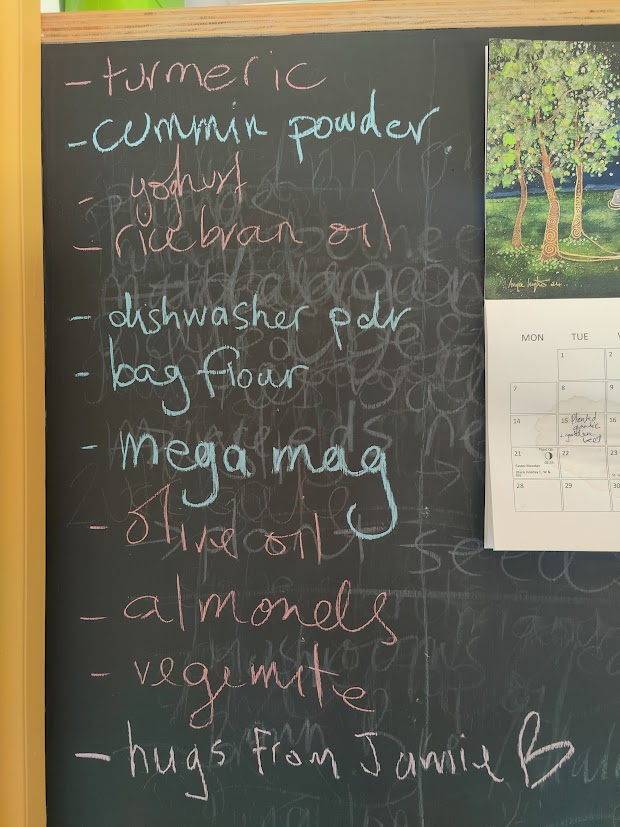 - turmeric
- cummin powder
- yoghurt
- rice bran oil
- dishwasher pdr
- bag flour
- mega mag
- olive oil
- almonds
- vegemite
- hugs from Jamie B
MON TUE
1 2
7 8 9
14 15 16
Planted garlic
21 22 23
Easter Monday
28 29 30